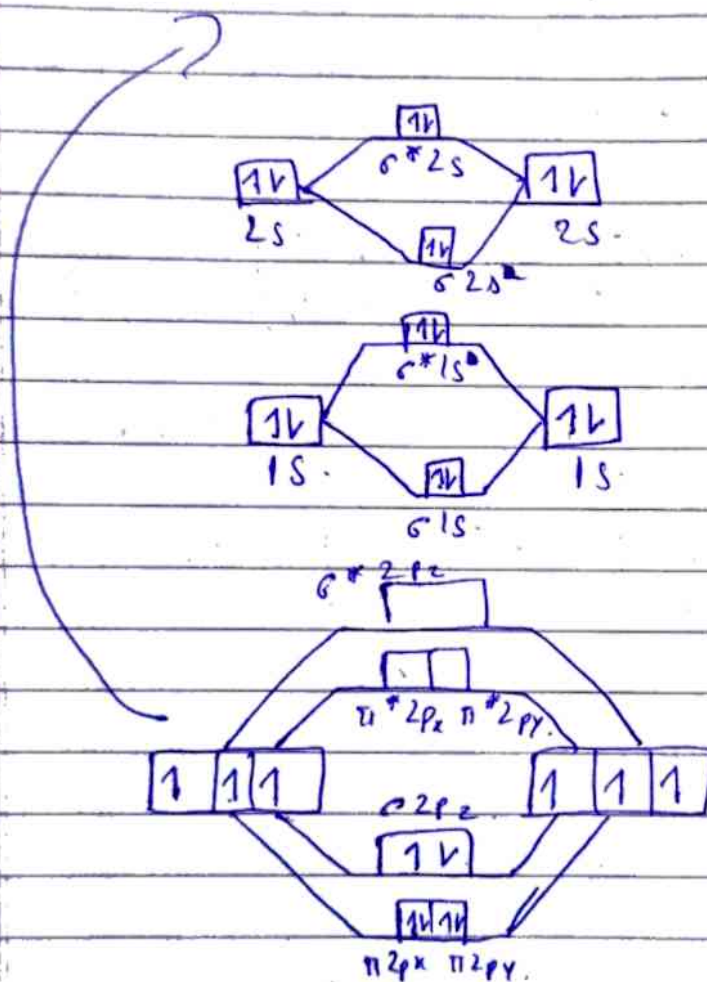 1↓
σ*2s
1↓ 1↓
2s 2s.
1↓
σ2s
1↓
σ*1s
1↓ 1↓
1s. 1s.
1↓
σ1s.
σ*2pz
π*2px π*2py.
1 1 1 1 1 1
σ2pz
1↓
1↓ 1↓
π2px π2py.